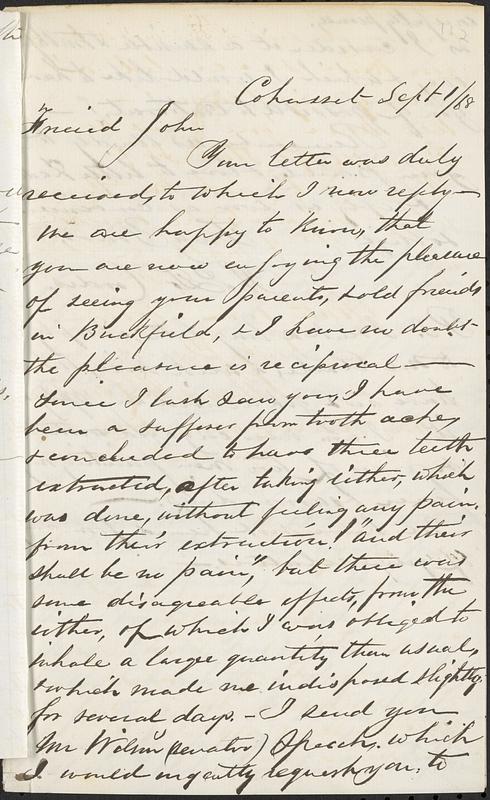 Cohasset Sept 1/68
Friend John
Your letter was duly
received, to which I now reply—
We are happy to know, that
you are now enjoying the pleasure
of seeing your parents, & old friends
in Buckfield, & I have no doubt
the pleasure is reciprocal—
Since I last saw you, I have
been a sufferer from tooth ache,
& concluded to have three teeth
extracted, after taking either, which
was done, without feeling any pain,
from their extraction! "and their
shall be no pain", but there was
some disagreeable effects, from the
either, of which I was obliged to
inhale a larger quantity than usual,
& which made me indisposed slightly
for several days. - I send you
Mr Wilson (senator) Speech, which
I would urgently request you, to